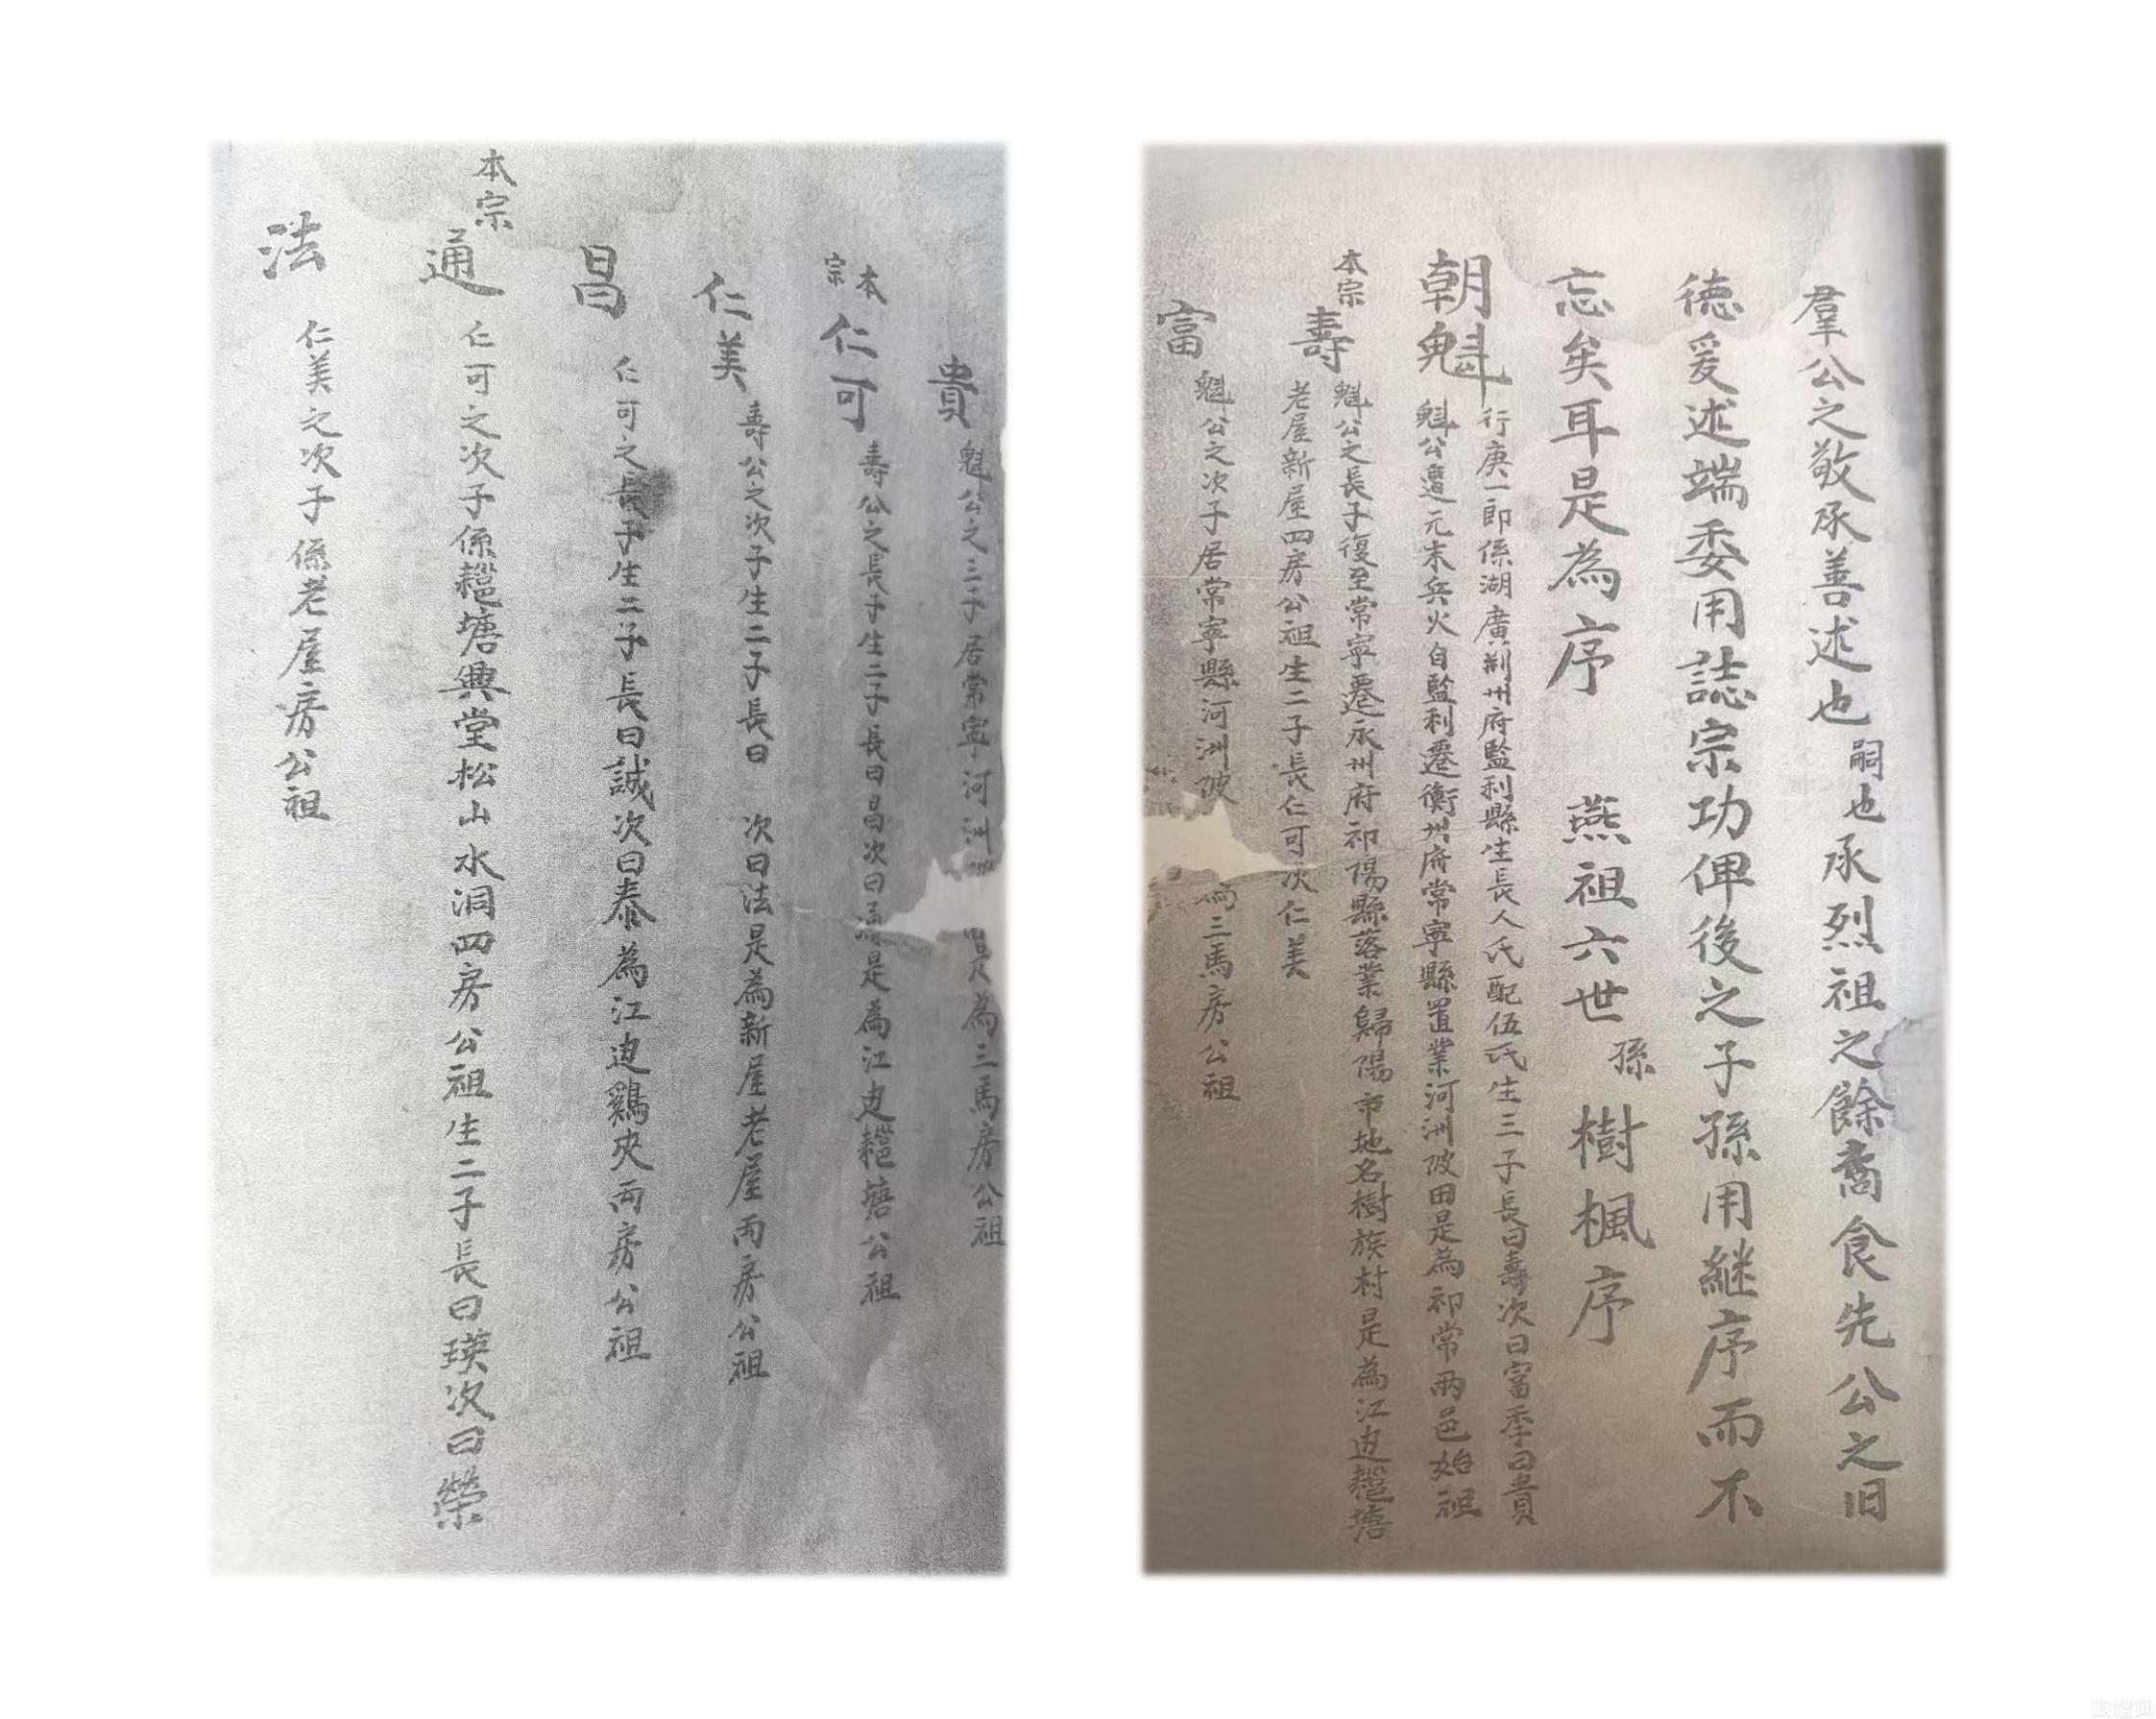 羣公之敬承善述也嗣也承烈祖之餘裔食先公之旧
德爰述端委用誌宗功俾後之子孫用継序而不
忘矣耳是為序 燕祖六世孫樹楓序
朝魁
行庚一郎係湖廣荆州府監利縣生長人氏配伍氏生三子長曰壽次曰富季曰貴
魁公遭元末兵火自監利遷衡州府常寧縣置業河洲陂田是為祁常兩邑始祖
本宗
壽
魁公之長子復至常寧遷永州府祁陽縣落業歸陽市地名樹族村是為江边塘
老屋新屋四房公祖生二子長仁可次仁美
富
魁公之次子居常寧縣河洲陂 三馬房公祖
貴
魁公之三子居常寧河洲 是為三馬房公祖
本宗
仁可
壽公之長子生二子長曰昌次曰通是為江边塘公祖
仁美
壽公之次子生二子長曰 次曰法是為新屋老屋兩房公祖
昌
仁可之長子生二子長曰誠次曰泰為江边鷄夾兩房公祖
本宗
通
仁可之次子係塘興堂松山水洞四房公祖生二子長曰瑛次曰榮
法
仁美之次子係老屋房公祖